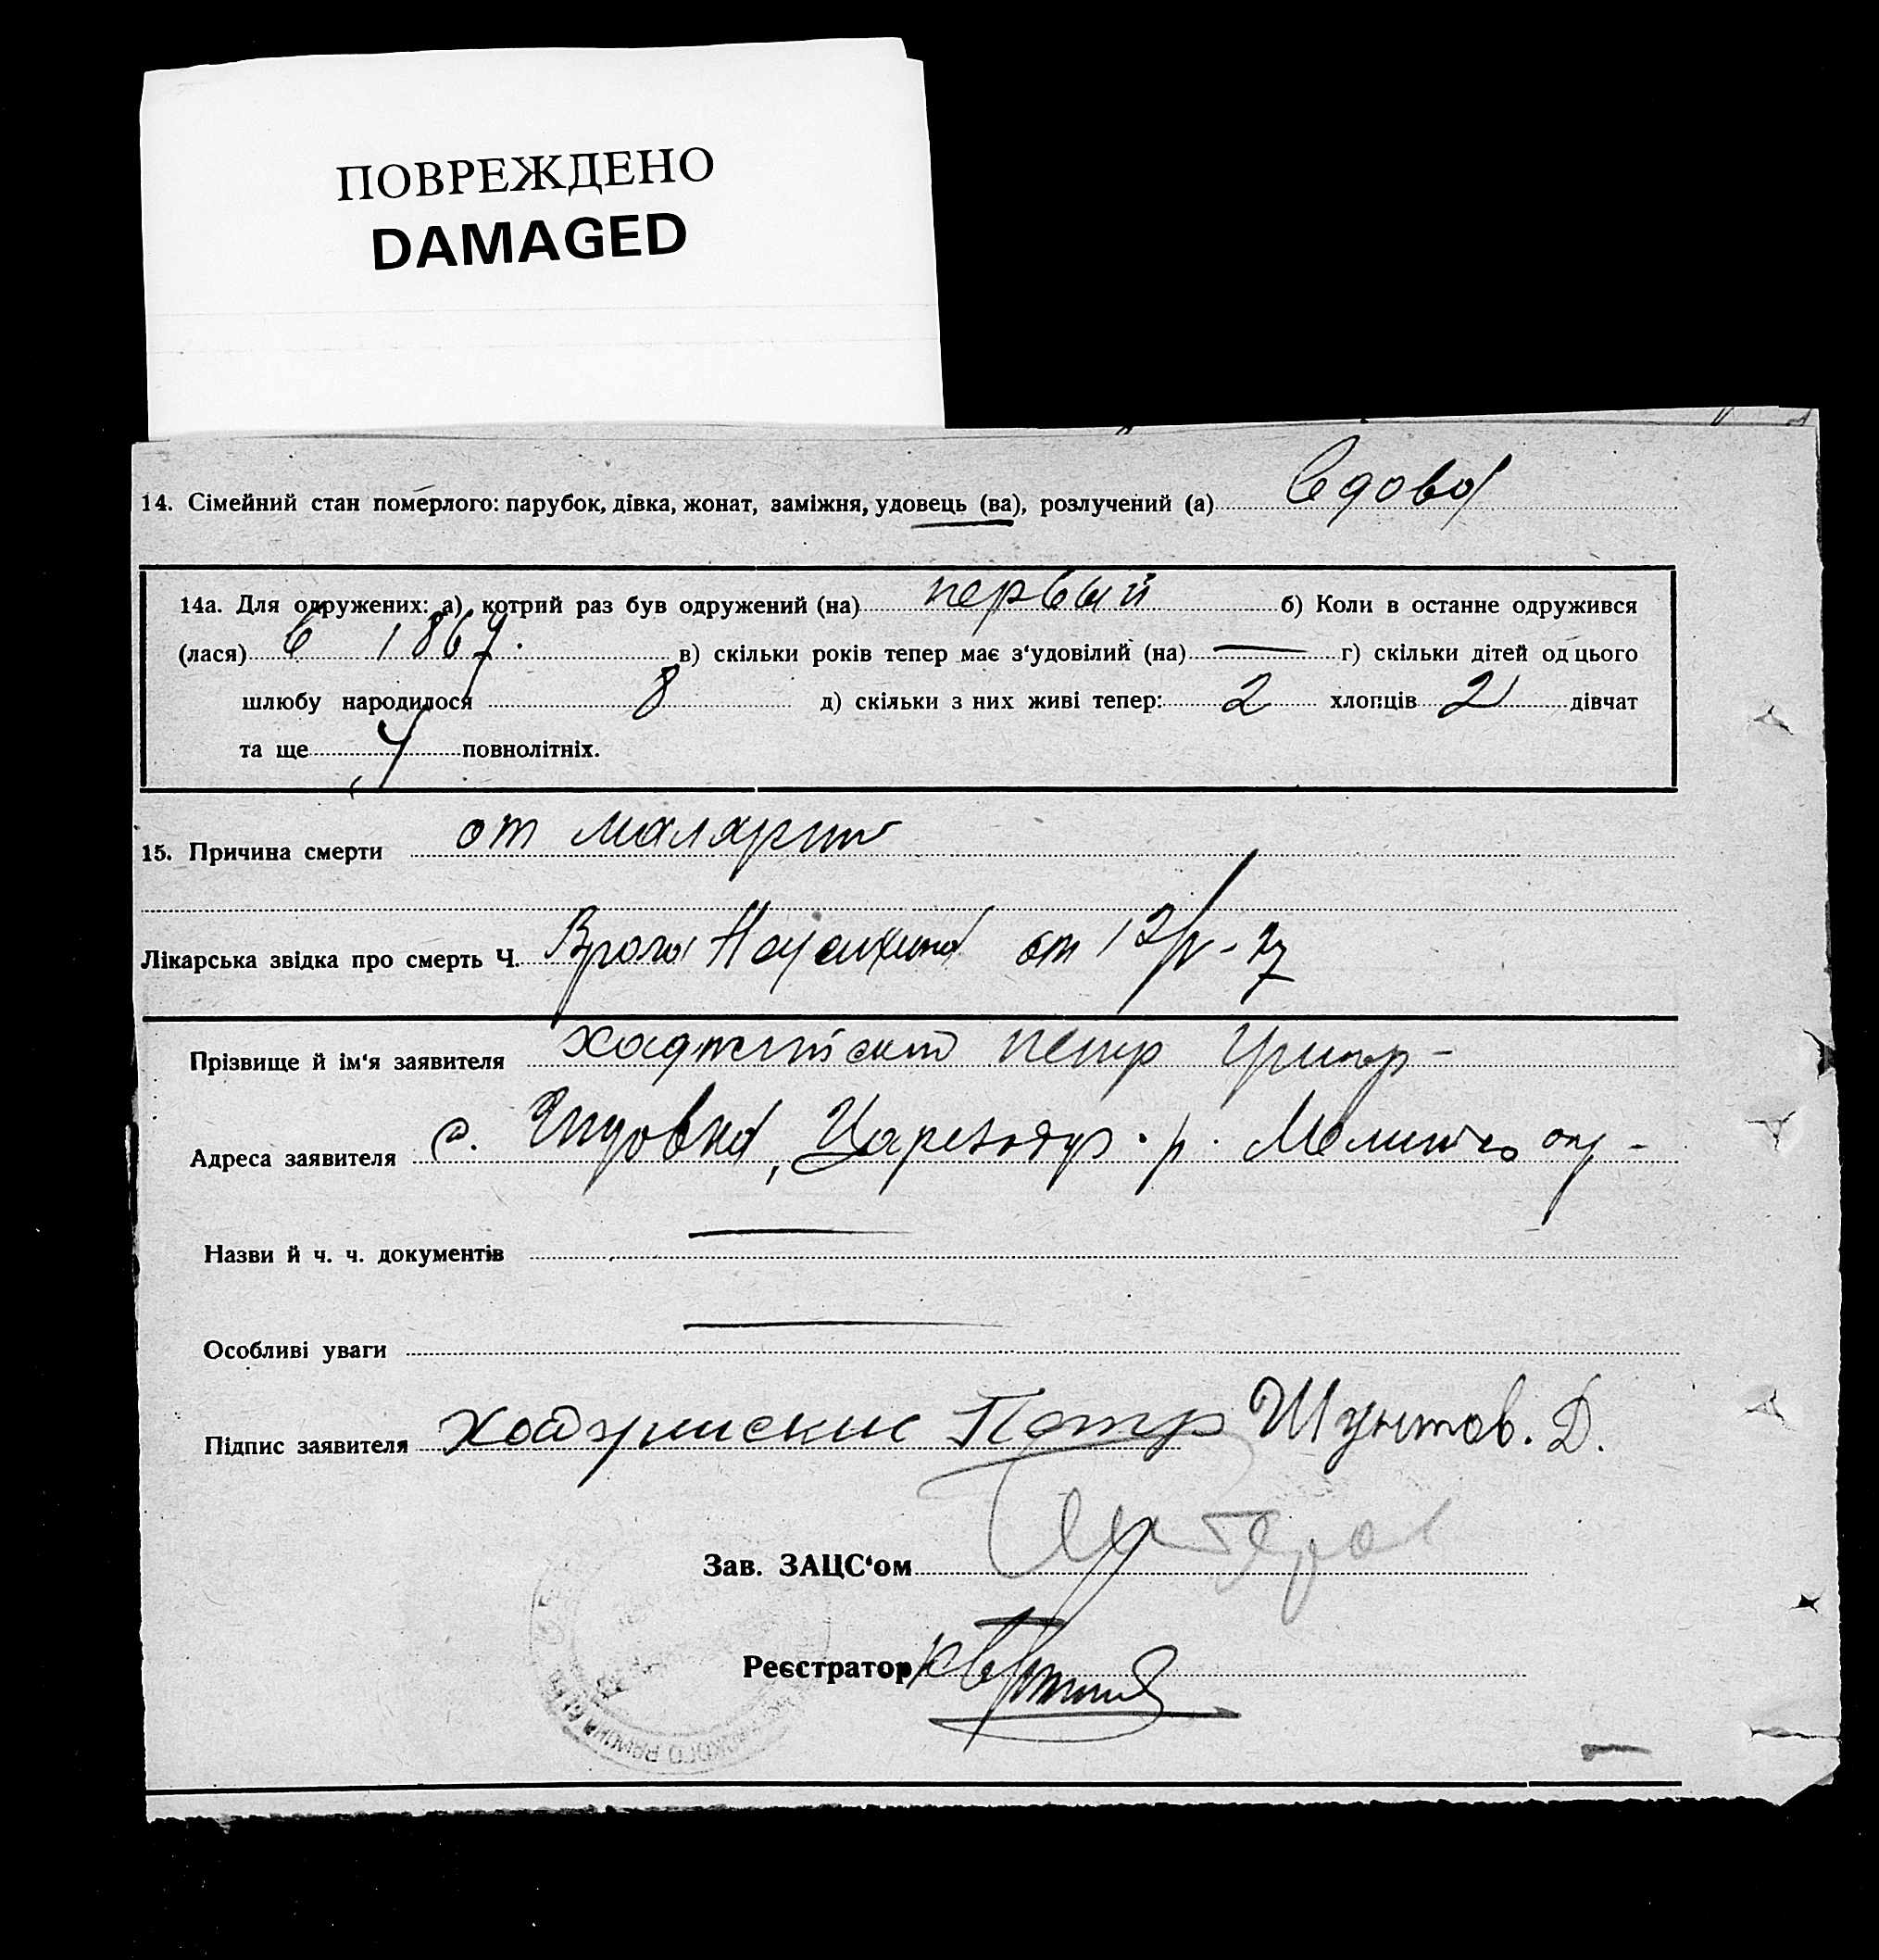 ПОВРЕЖДЕНО
DAMAGED
14. Сімейний стан померлого: парубок, дівка, жонат, заміжня, удовець (ва), розлучений (а) вдова
14а. Для одружених: а) котрий раз був одружений (на) первый б) Коли в останне одружився
(лася) в 1867. в) скільки років тепер має з‘удовілий (на) — г) скільки дітей од цього
шлюбу народилося 8 д) скільки з них живі тепер: 2 хлопців 2 дівчат
та ще 4 повнолітніх.
15. Причина смерти от малярии
Лікарська звідка про смерть Ч. Врача от 12/V-27
Прізвище й ім‘я заявителя Хаджийский Петр Григор-
Адреса заявителя с. р. окр-
Назви й ч. ч. документів —
Особливі уваги —
Підпис заявителя Петр Шунтов. Д.
Зав. ЗАЦС‘ом
Реєстратор